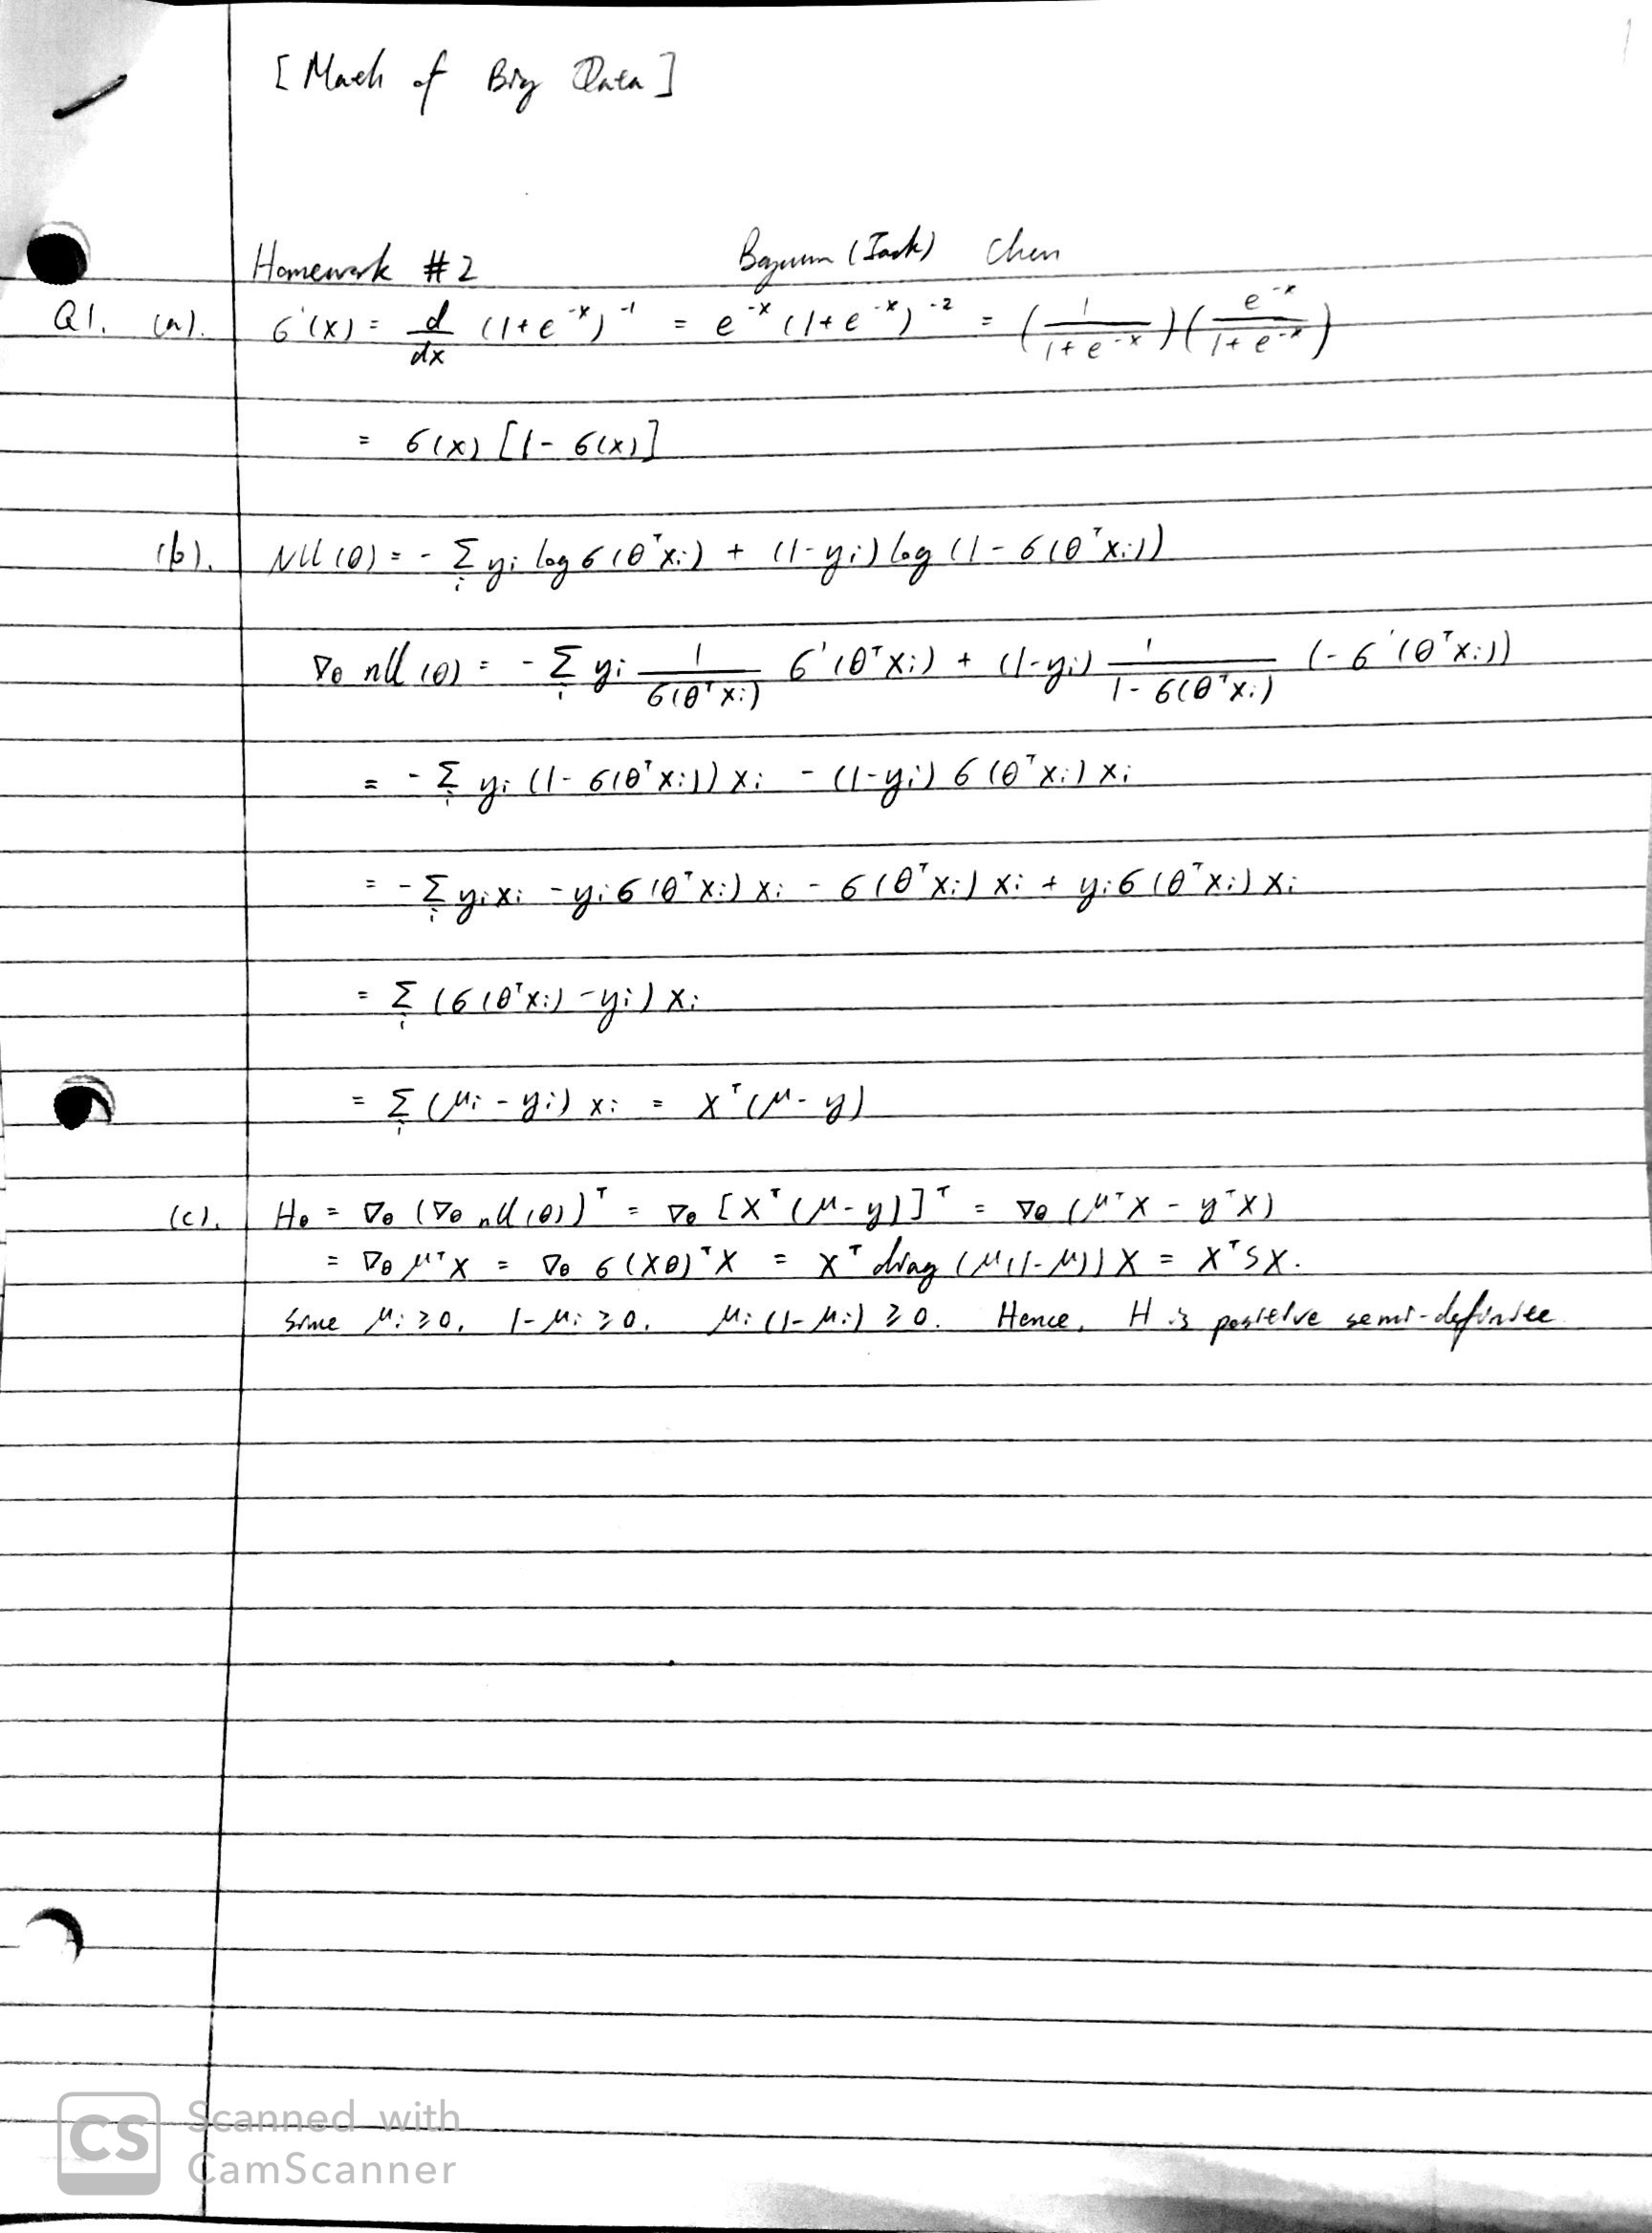 [Math of Big Data]
Homework #2 (Jack) Chen
Q1. (a). σ'(x) = d/dx (1+e^-x)^-1 = e^-x (1+e^-x)^-2 = (1/(1+e^-x))(e^-x/(1+e^-x))
= σ(x) [1 - σ(x)]
(b). Nll(θ) = - Σ_i y_i log σ(θ^T x_i) + (1-y_i) log (1 - σ(θ^T x_i))
∇_θ nll(θ) = - Σ_i y_i 1/σ(θ^T x_i) σ'(θ^T x_i) + (1-y_i) 1/(1 - σ(θ^T x_i)) (-σ'(θ^T x_i))
= - Σ_i y_i (1 - σ(θ^T x_i)) x_i - (1-y_i) σ(θ^T x_i) x_i
= - Σ_i y_i x_i - y_i σ(θ^T x_i) x_i - σ(θ^T x_i) x_i + y_i σ(θ^T x_i) x_i
= Σ_i (σ(θ^T x_i) - y_i) x_i
= Σ_i (μ_i - y_i) x_i = X^T (μ - y)
(c). H_θ = ∇_θ (∇_θ nll(θ))^T = ∇_θ [X^T (μ - y)]^T = ∇_θ (μ^T X - y^T X)
= ∇_θ μ^T X = ∇_θ σ(Xθ)^T X = X^T diag (μ(1-μ)) X = X^T S X.
Since μ_i ≥ 0, 1 - μ_i ≥ 0, μ_i (1 - μ_i) ≥ 0. Hence, H is positive semi-definite
CS Scanned with
CamScanner